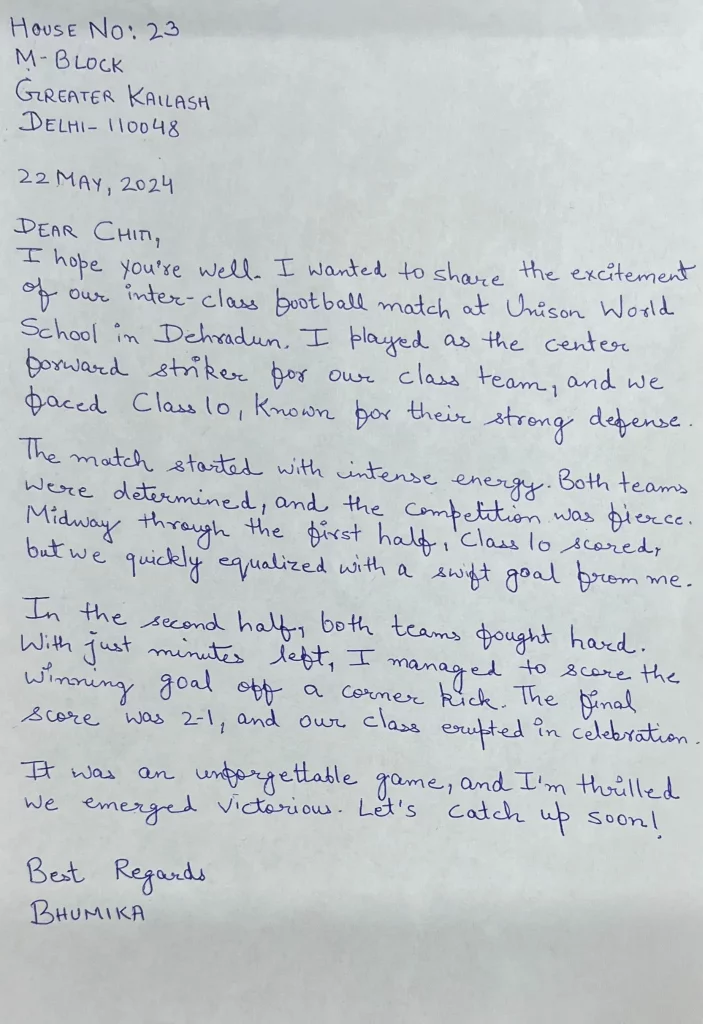 HOUSE NO: 23
M-BLOCK
GREATER KAILASH
DELHI- 110048
22 MAY, 2024
DEAR CHITI,
I hope you're well. I wanted to share the excitement
of our inter-class football match at Unison World
School in Dehradun. I played as the center
forward striker for our class team, and we
faced Class 10, known for their strong defense.
The match started with intense energy. Both teams
were determined, and the competition was fierce.
Midway through the first half, Class 10 scored,
but we quickly equalized with a swift goal from me.
In the second half, both teams fought hard.
With just minutes left, I managed to score the
winning goal off a corner kick. The final
score was 2-1, and our class erupted in celebration.
It was an unforgettable game, and I'm thrilled
we emerged victorious. Let's catch up soon!
Best Regards
BHUMIKA